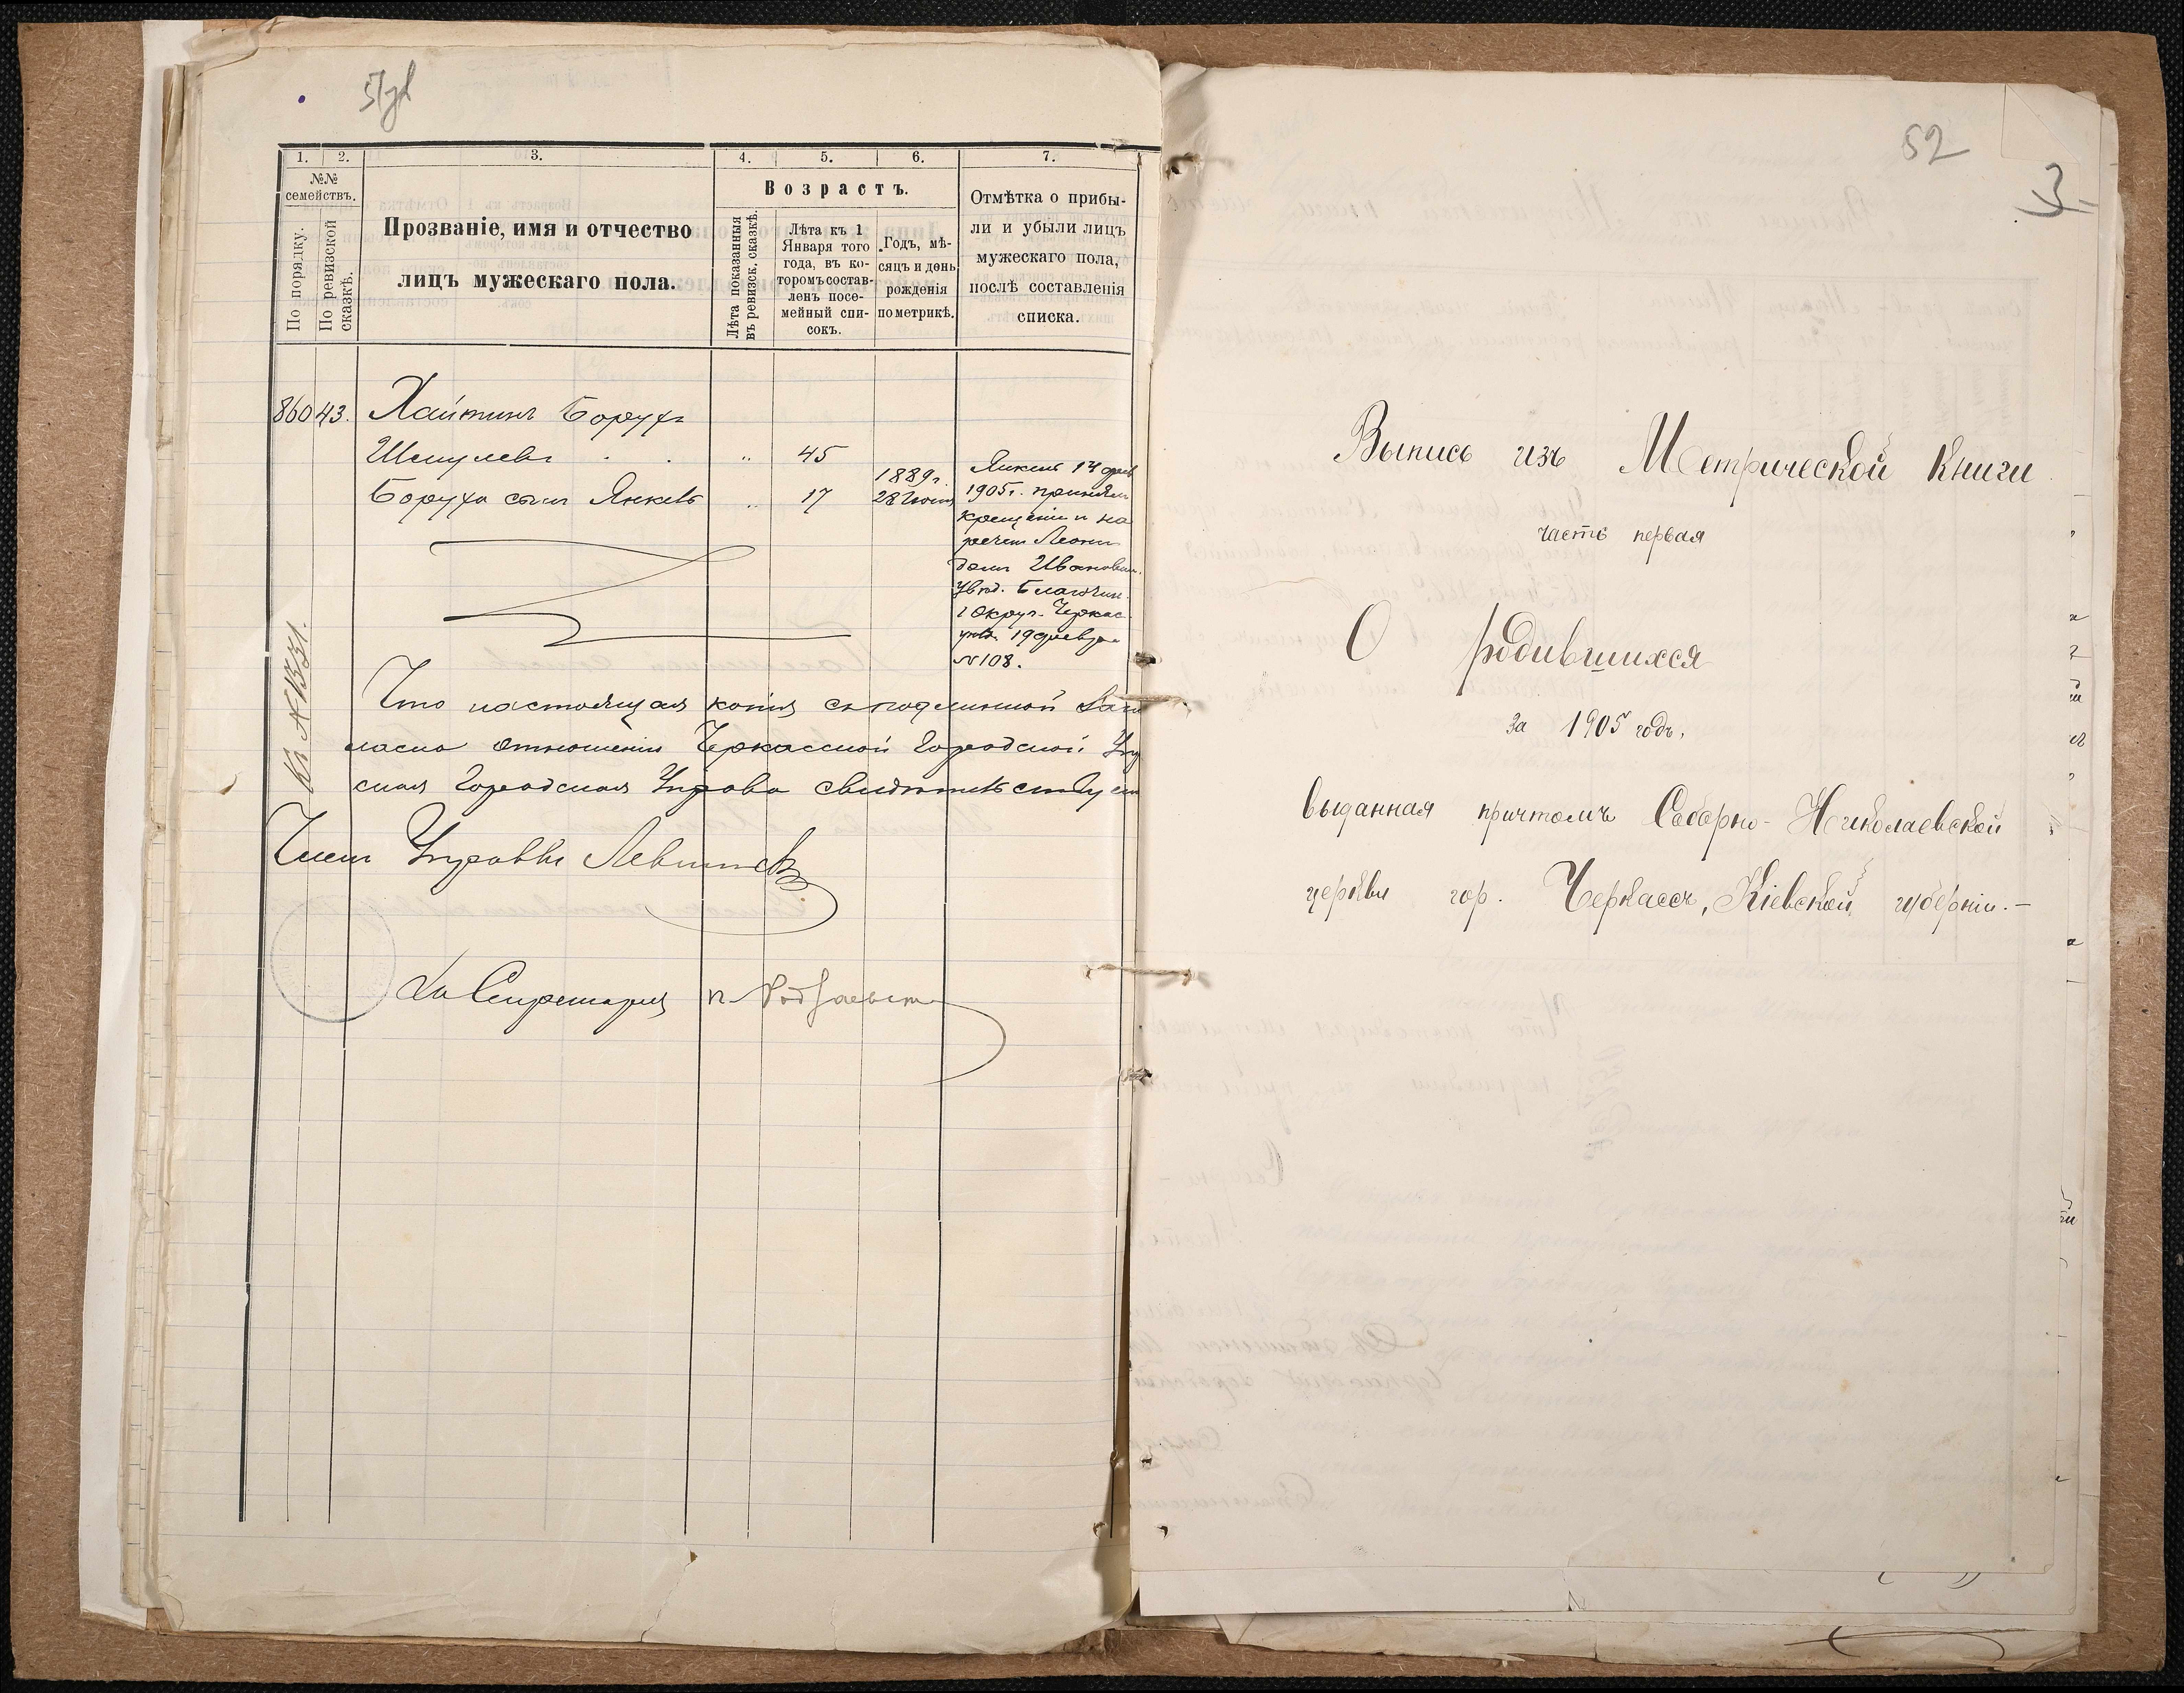 51
1. 2. 3. 4. 5. 6. 7.
№№ семействъ.
По порядку.
По ревизской сказкѣ.
Прозваніе, имя и отчество
лицъ мужескаго пола.
Возрастъ.
Лѣта показанныя
въ ревизск. сказкѣ.
Лѣта къ 1
Января того
года, въ ко-
торомъ состав-
ленъ посе-
мейный спи-
сокъ.
Годъ, мѣ-
сяцъ и день
рожденія
по метрикѣ.
Отмѣтка о прибы-
ли и убыли лицъ
мужескаго пола,
послѣ составленія
списка.
860 43. Хайтинъ Борухъ
Шмулевъ . . „ 45
Боруха сынъ Янкель „ 17
1889 г.
28 Іюня
Янкель 14 фев
1905 г. принялъ
крещеніе и на
реченъ Леони
домъ Ивановым.
Увѣд. Благочин.
1 Округ. Черкас.
уѣзд. 19 февра
№ 108.
Кѣ № 1331.
Что настоящая копія съ подлинной
ласно отношенію Черкасской Городской Упр
ская Городская Управа свидѣтельствуетъ
Членъ Управы
За Секретаря
52
3
Выпись изъ Метрической Книги
часть первая
О родившихся
за 1905 годъ.
выданная причтомъ Соборно-Николаевской
церкви гор. Черкассъ, Кіевской губерніи.—